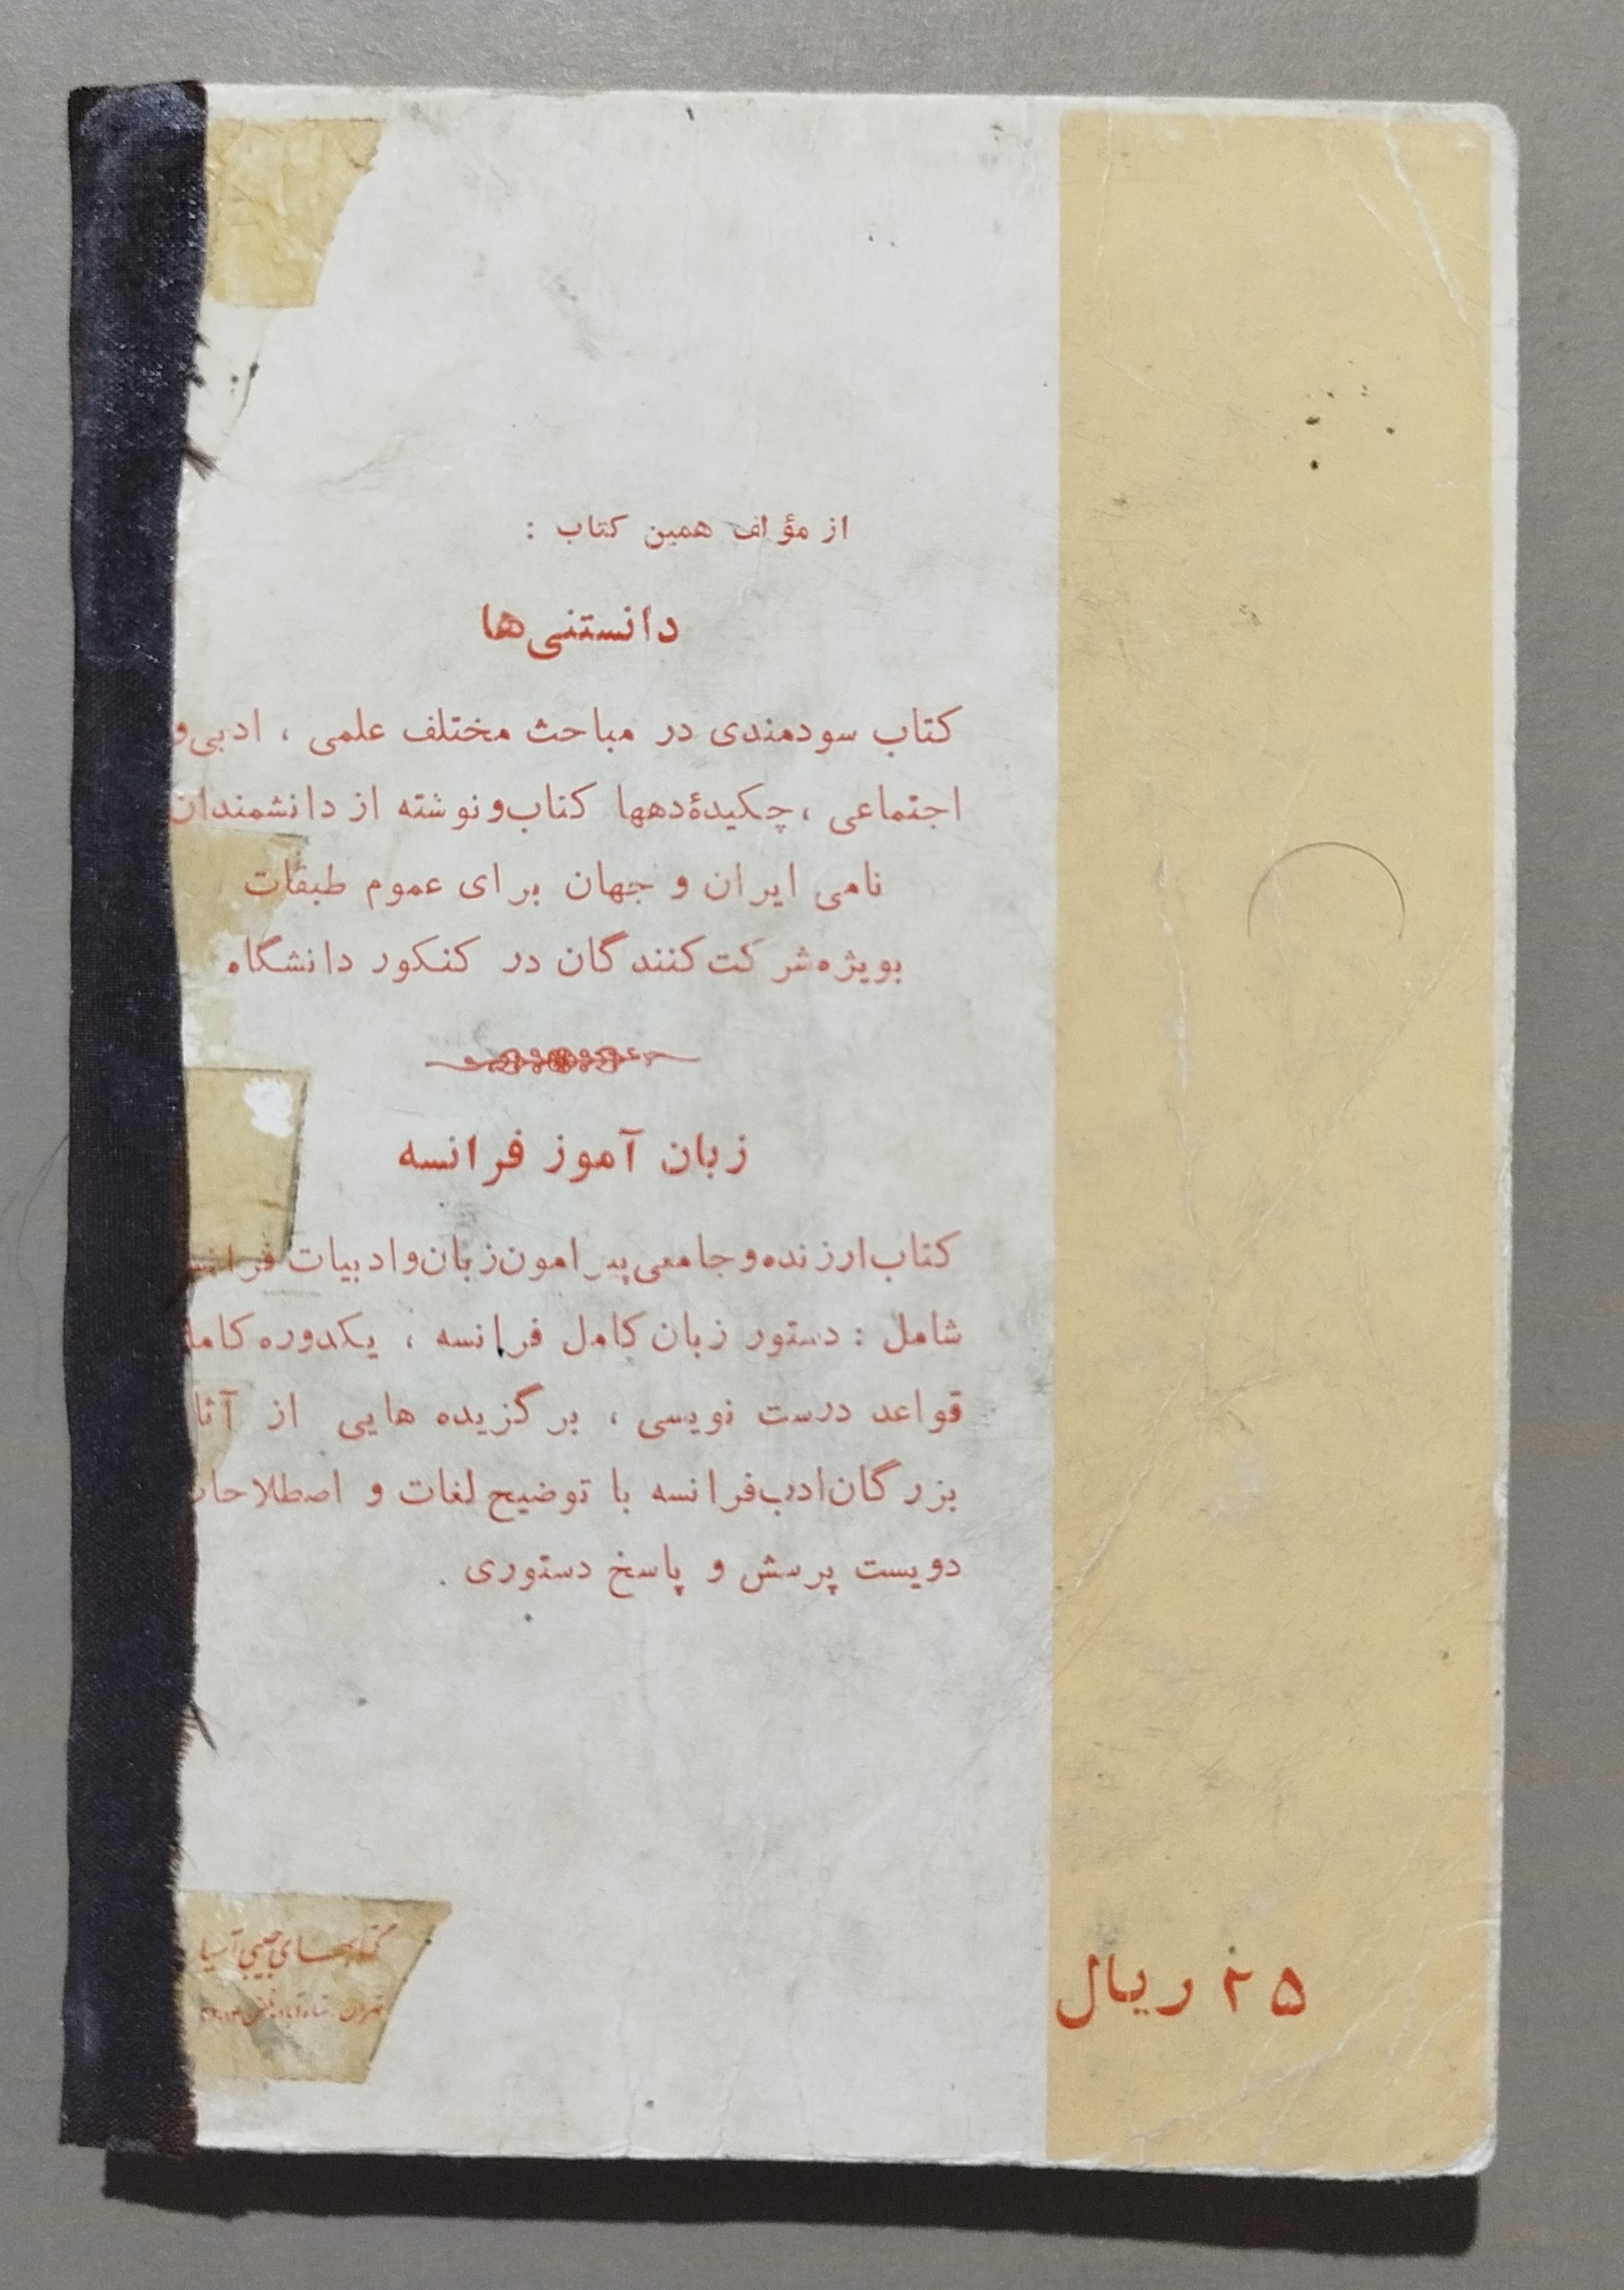 از مؤلف همین کتاب :
دانستنی‌ها
کتاب سودمندی در مباحث مختلف علمی ، ادبی و
اجتماعی ، چکیدهٔ دهها کتاب و نوشته از دانشمندان
نامی ایران و جهان برای عموم طبقات
بویژه شرکت کنندگان در کنکور دانشگاه
زبان آموز فرانسه
کتاب ارزنده و جامعی پیرامون زبان و ادبیات
شامل : دستور زبان کامل فرانسه ، یکدوره
قواعد درست نویسی ، برگزیده هایی از
بزرگان ادب فرانسه با توضیح لغات و
دویست پرسش و پاسخ دستوری .
کتابهای جیبی آسیا
تهران
۲۵ ریال